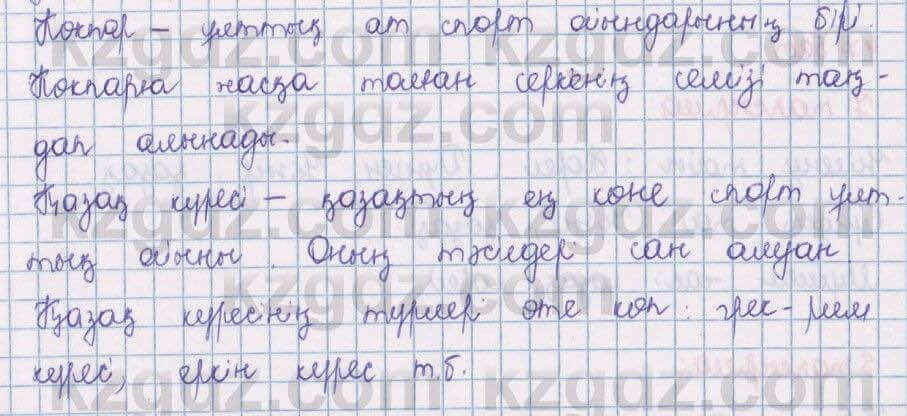 Көкпар – ұлттық ат спорт ойындарының бірі.
Көкпарға жасқа толған серкенің семізі таң-
дап алынады.
Қазақ күресі – қазақтың ең көне спорт ұлт-
тық ойыны. Оның тәсілдері сан алуан
Қазақ күресінің түрлері өте көп: грек-рим
күресі, еркін күрес т.б.
kzgdz.com